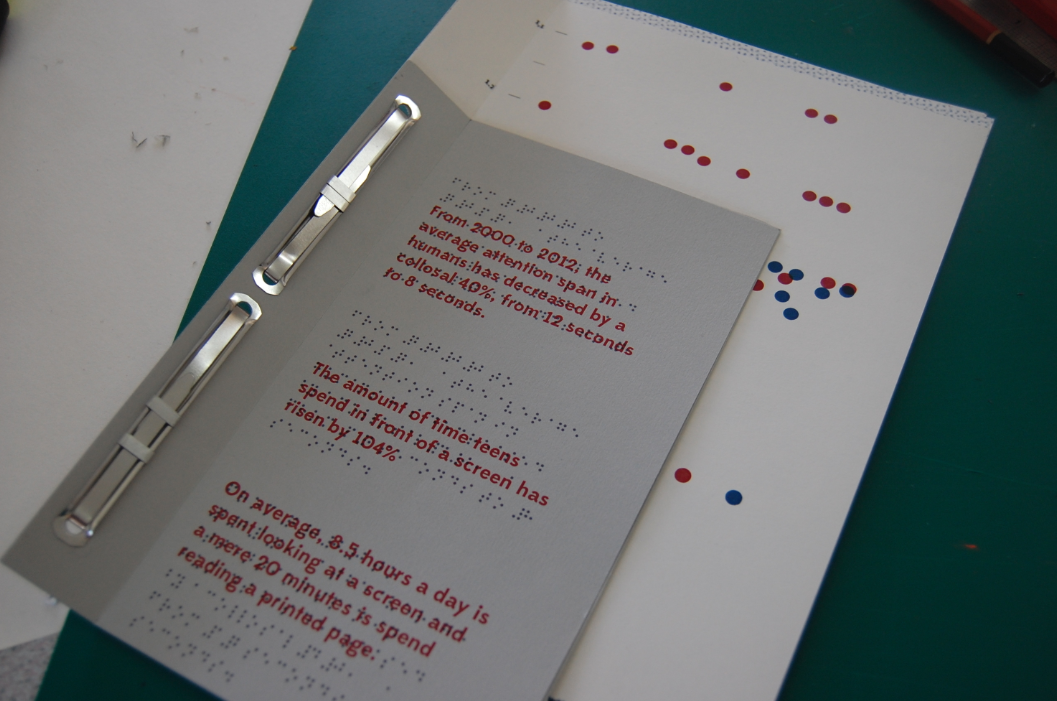 From 2000 to 2012, the
average attention span in
humans has decreased by a
collosal 40%, from 12 seconds
to 8 seconds.
The amount of time teens
spend in front of a screen has
risen by 104%
On average, 8.5 hours a day is
spent looking at a screen and
a mere 20 minutes is spend
reading a printed page.